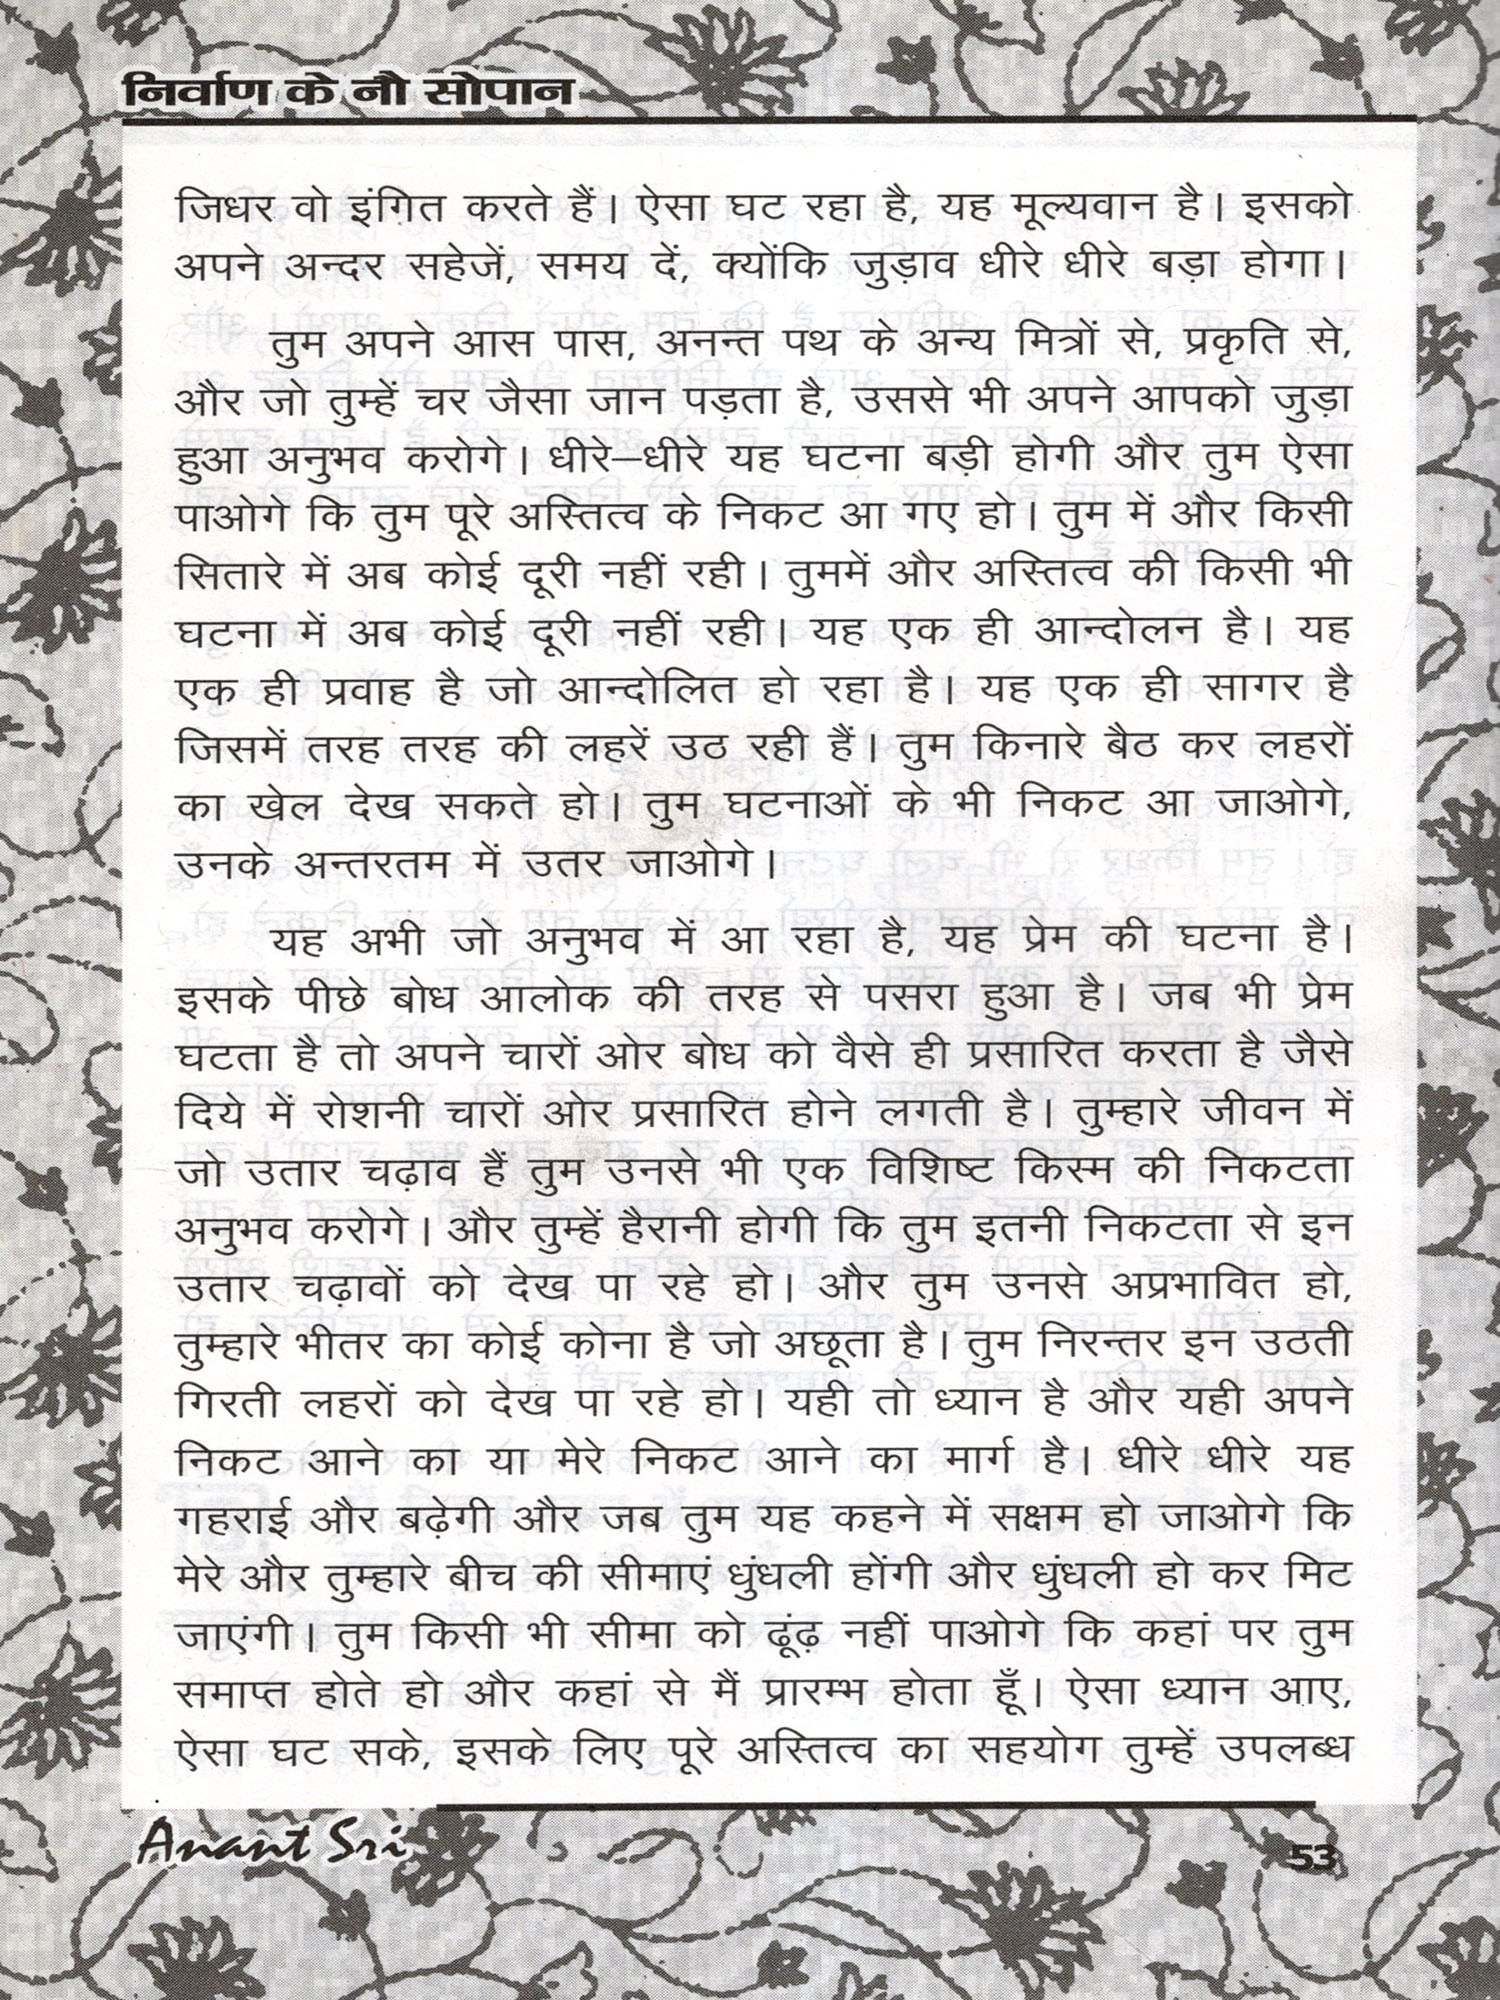 निर्वाण के नौ सोपान
जिधर वो इंगित करते हैं। ऐसा घट रहा है, यह मूल्यवान है। इसको
अपने अन्दर सहेजें, समय दें, क्योंकि जुड़ाव धीरे धीरे बड़ा होगा।
तुम अपने आस पास, अनन्त पथ के अन्य मित्रों से, प्रकृति से,
और जो तुम्हें चर जैसा जान पड़ता है, उससे भी अपने आपको जुड़ा
हुआ अनुभव करोगे। धीरे–धीरे यह घटना बड़ी होगी और तुम ऐसा
पाओगे कि तुम पूरे अस्तित्व के निकट आ गए हो। तुम में और किसी
सितारे में अब कोई दूरी नहीं रही। तुममें और अस्तित्व की किसी भी
घटना में अब कोई दूरी नहीं रही। यह एक ही आन्दोलन है। यह
एक ही प्रवाह है जो आन्दोलित हो रहा है। यह एक ही सागर है
जिसमें तरह तरह की लहरें उठ रही हैं। तुम किनारे बैठ कर लहरों
का खेल देख सकते हो। तुम घटनाओं के भी निकट आ जाओगे,
उनके अन्तरतम में उतर जाओगे।
यह अभी जो अनुभव में आ रहा है, यह प्रेम की घटना है।
इसके पीछे बोध आलोक की तरह से पसरा हुआ है। जब भी प्रेम
घटता है तो अपने चारों ओर बोध को वैसे ही प्रसारित करता है जैसे
दिये में रोशनी चारों ओर प्रसारित होने लगती है। तुम्हारे जीवन में
जो उतार चढ़ाव हैं तुम उनसे भी एक विशिष्ट किस्म की निकटता
अनुभव करोगे। और तुम्हें हैरानी होगी कि तुम इतनी निकटता से इन
उतार चढ़ावों को देख पा रहे हो। और तुम उनसे अप्रभावित हो,
तुम्हारे भीतर का कोई कोना है जो अछूता है। तुम निरन्तर इन उठती
गिरती लहरों को देख पा रहे हो। यही तो ध्यान है और यही अपने
निकट आने का या मेरे निकट आने का मार्ग है। धीरे धीरे यह
गहराई और बढ़ेगी और जब तुम यह कहने में सक्षम हो जाओगे कि
मेरे और तुम्हारे बीच की सीमाएं धुंधली होंगी और धुंधली हो कर मिट
जाएंगी। तुम किसी भी सीमा को ढूंढ़ नहीं पाओगे कि कहां पर तुम
समाप्त होते हो और कहां से मैं प्रारम्भ होता हूँ। ऐसा ध्यान आए,
ऐसा घट सके, इसके लिए पूरे अस्तित्व का सहयोग तुम्हें उपलब्ध
Anant Sri
53